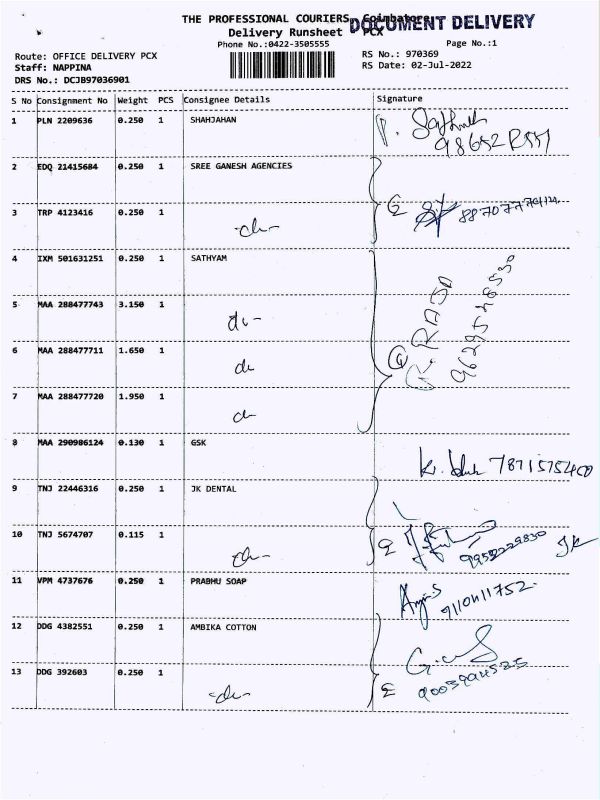 THE PROFESSIONAL COURIERS, Coimbatore
PCX
DOCUMENT DELIVERY
Delivery Runsheet
Phone No.:0422-3505555
Page No.:1
Route: OFFICE DELIVERY PCX
RS No.: 970369
Staff: NAPPINA
RS Date: 02-Jul-2022
DRS No.: DCJB97036901
S No Consignment No Weight PCS Consignee Details Signature
1 PLN 2209636 0.250 1 SHAHJAHAN
2 EDQ 21415684 0.250 1 SREE GANESH AGENCIES
3 TRP 4123416 0.250 1
4 IXM 501631251 0.250 1 SATHYAM
5 MAA 288477743 3.150 1
6 MAA 288477711 1.650 1
7 MAA 288477720 1.950 1
8 MAA 290986124 0.130 1 GSK
9 TNJ 22446316 0.250 1 JK DENTAL
10 TNJ 5674707 0.115 1
9952229830 JK
11 VPM 4737676 0.250 1 PRABHU SOAP
12 DDG 4382551 0.250 1 AMBIKA COTTON
13 DDG 392603 0.250 1